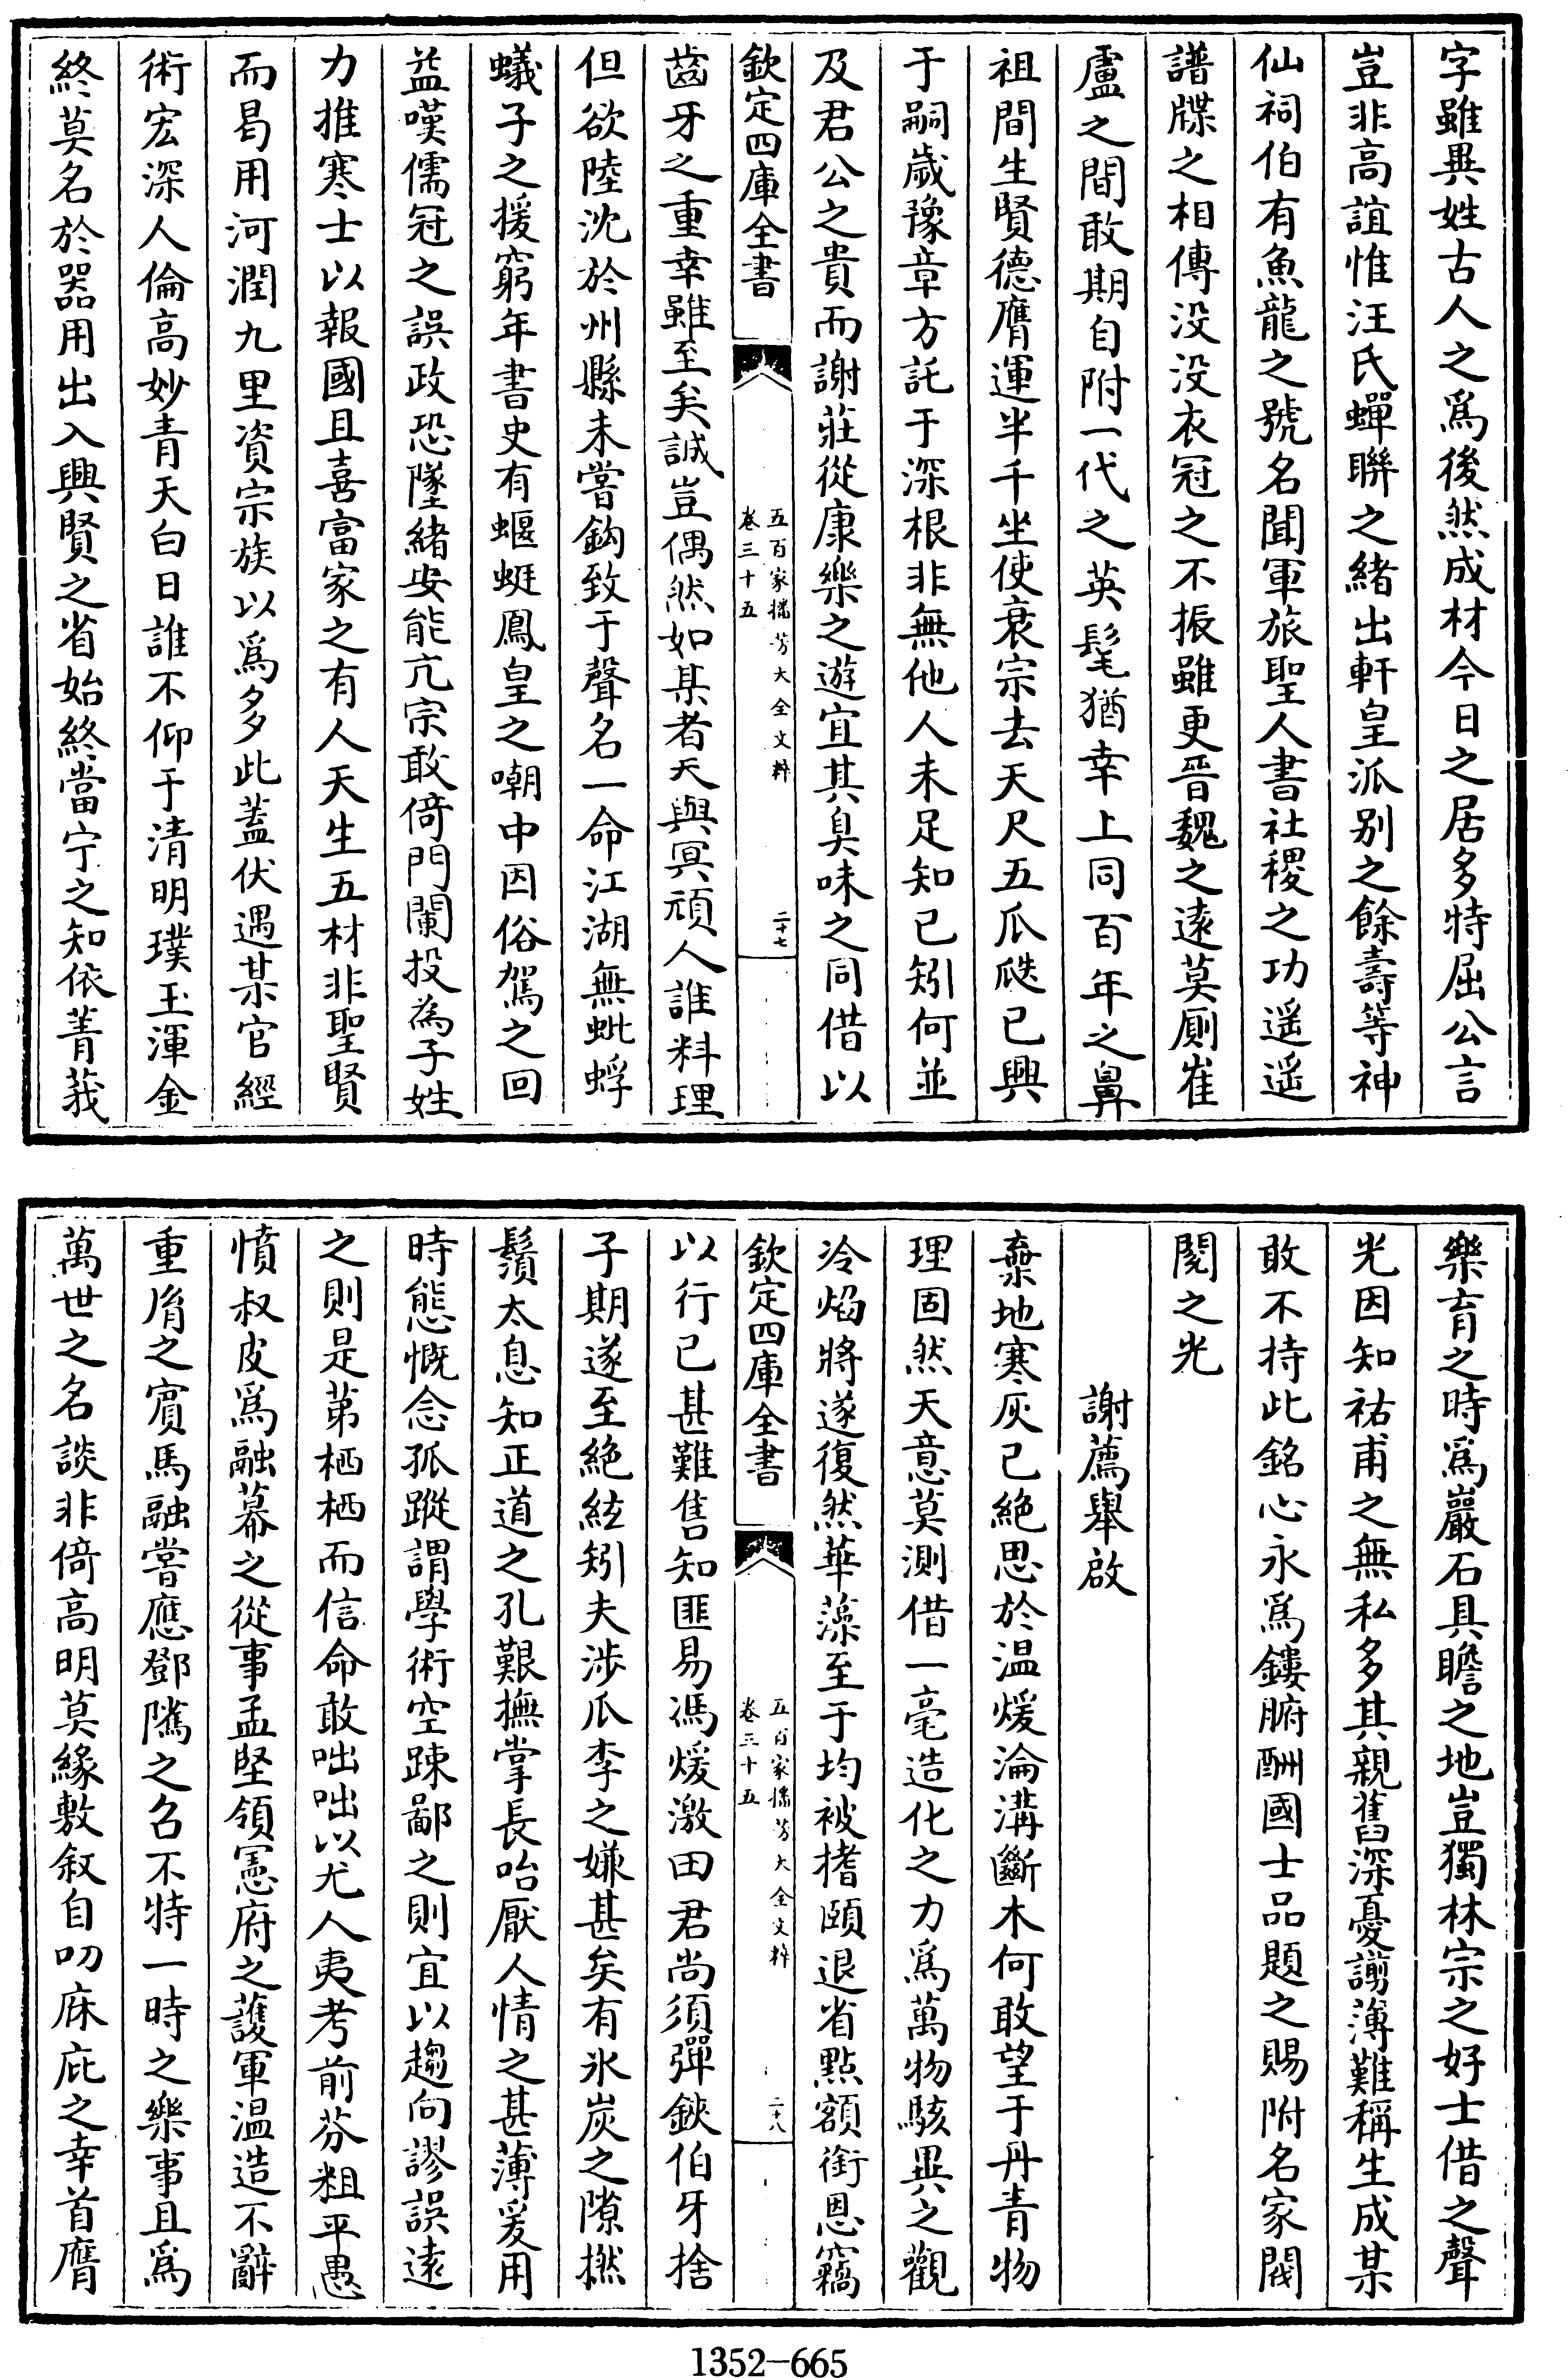 字雖異姓古人之爲後然成材今日之居多特屈公言
豈非高誼惟汪氏蟬聯之緒出軒皇派别之餘壽等神
仙祠伯有魚龍之號名聞軍旅聖人書社稷之功遥遥
譜牒之相傳没没衣冠之不振雖更晉魏之遠莫厠崔
盧之間敢期自附一代之英髦猶幸上同百年之鼻
祖間生賢德膺運半千坐使衰宗去天尺五瓜瓞已興
于嗣歲豫章方託于深根非無他人未足知已矧何並
及君公之貴而謝莊從康樂之遊宜其臭味之同借以
欽定四庫全書
五百家播芳大全文粹
卷三十五
二十七
齒牙之重幸雖至矣誠豈偶然如某者天與冥頑人誰料理
但欲陸沈於州縣未嘗鈎致于聲名一命江湖無蚍蜉
蟻子之援窮年書史有蝘蜓鳳皇之嘲中因俗駕之回
益嘆儒冠之誤政恐墜緒安能亢宗敢倚門闌投為子姓
力推寒士以報國且喜富家之有人天生五材非聖賢
而曷用河潤九里資宗族以爲多此蓋伏遇某官經
術宏深人倫高妙青天白日誰不仰于清明璞玉渾金
終莫名於器用出入興賢之省始終當宁之知依菁莪
樂育之時爲巖石具瞻之地豈獨林宗之好士借之聲
光因知祐甫之無私多其親舊深憂謭薄難稱生成某
敢不持此銘心永爲鏤腑酬國士品題之賜附名家閥
閲之光
謝薦舉啟
棄地寒灰已絶思於温煖淪溝斷木何敢望于丹青物
理固然天意莫測借一毫造化之力爲萬物駭異之觀
冷焰將遂復然華藻至于均被搘頤退省點額銜恩竊
欽定四庫全書
五百家播芳大全文粹
卷三十五
二十八
以行已甚難售知匪易馮煖激田君尚須彈鋏伯牙捨
子期遂至絶絃矧夫涉瓜李之嫌甚矣有氷炭之隙撚
鬚太息知正道之孔艱撫掌長咍厭人情之甚薄爰用
時態慨念孤蹤謂學術空踈鄙之則宜以趨向謬誤遠
之則是第栖栖而信命敢咄咄以尤人夷考前芬粗平愚
憤叔皮爲融幕之從事孟堅領憲府之護軍温造不辭
重胤之賓馬融嘗應鄧隲之召不特一時之樂事且爲
萬世之名談非倚高明莫緣敷叙自叨庥庇之幸首膺
1352-665